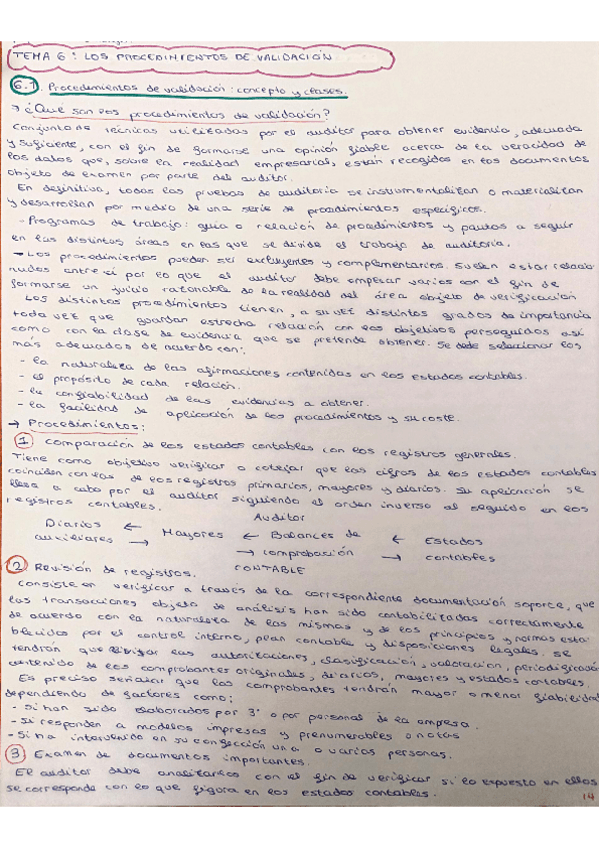 TEMA 6: LOS PROCEDIMIENTOS DE VALIDACIÓN
6.1 Procedimientos de validación: concepto y clases.
→ ¿Qué son los procedimientos de validación?
Conjunto de técnicas utilizadas por el auditor para obtener evidencia, adecuada
y suficiente, con el fin de formarse una opinión fiable acerca de la veracidad de
los datos que, sobre la realidad empresarial, están recogidos en los documentos
objeto de examen por parte del auditor.
En definitiva, todas las pruebas de auditoría se instrumentalizan o materializan
y desarrollan por medio de una serie de procedimientos específicos.
- Programas de trabajo: guía o relación de procedimientos y pautas a seguir
en las distintas áreas en las que se divide el trabajo de auditoría.
→ Los procedimientos pueden ser excluyentes y complementarios. Suelen estar relacio
nados entre sí por lo que el auditor debe emplear varios con el fin de
formarse un juicio razonable de la realidad del área objeto de verificación
Los distintos procedimientos tienen, a su vez distintos grados de importancia
toda vez que guardan estrecha relación con los objetivos perseguidos así
como con la clase de evidencia que se pretende obtener. Se debe seleccionar los
más adecuados de acuerdo con:
- la naturaleza de las afirmaciones contenidas en los estados contables.
- el propósito de cada relación.
- la confiabilidad de las evidencias a obtener.
- la facilidad de aplicación de los procedimientos y su coste.
→ Procedimientos:
1 Comparación de los estados contables con los registros generales.
Tiene como objetivo verificar o cotejar que las cifras de los estados contables
coinciden con las de los registros primarios, mayores y diarios. Su aplicación se
lleva a cabo por el auditor siguiendo el orden inverso al seguido en los
registros contables.
Auditor
Diarios ← Mayores ← Balances de ← Estados
auxiliares → → comprobación → contables
CONTABLE
2 Revisión de registros.
Consiste en verificar a través de la correspondiente documentación soporte, que
las transacciones objeto de análisis han sido contabilizadas correctamente
de acuerdo con la naturaleza de las mismas y de los principios y normas esta
blecidos por el control interno, plan contable y disposiciones legales. Se
tendrán que las autorizaciones, clasificación, valoración, periodificación
contenido de los comprobantes originales, diarios, mayores y estados contables.
Es preciso señalar que los comprobantes tendrán mayor o menor fiabilidad
dependiendo de factores como:
- Si han sido elaborados por 3º o por personal de la empresa.
- Si responden a modelos impresos y prenumerables o notas
- Si ha intervenido en su confección una o varias personas.
3 Examen de documentos importantes.
El auditor debe analizarlos con el fin de verificar si lo expuesto en ellos
se corresponde con lo que figura en los estados contables.
14